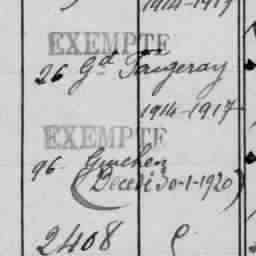 1914-1919
EXEMPTE
26 Gd Fougeray
1914-1917
EXEMPTE
96 Guichen
(Decedé 30-1-1920)
2408